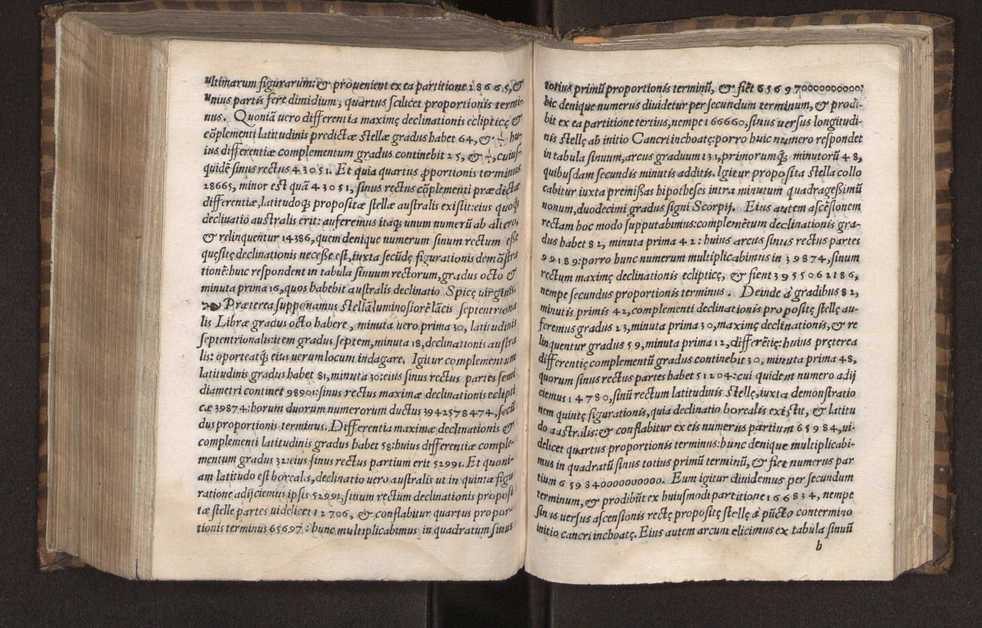 ultimarum figurarum: & prouenient ex ea partitione 28665, &
unius partis fere dimidium, quartus scilicet proportionis termi-
nus. Quoniā uero differentia maximę declinationis eclipticę &
cōplementi latitudinis predictæ stellæ gradus habet 64, & hu-
ius differentiæ complementum gradus continebit 25, & cuius
quidē sinus rectus 43051. Et quia quartus ꝓportionis terminus
28665, minor est quā 43051, sinus rectus cōplementi prædictæ
differentiæ, latitudoq; propositæ stellæ australis existit: eius quoq;
declinatio australis erit: auferemus itaq; unum numerū ab altero,
& relinquentur 14386, quem denique numerum sinum rectum esse
quęsitę declinationis necesse est, iuxta secūdę figurationis demōstra
tionē: huic respondent in tabula sinuum rectorum, gradus octo &
minuta prima 16, quos habebit australis declinatio Spicę uirginis.
Præterea supponamus stellā luminosiorē lācis septentriona
lis Libræ gradus octo habere, minuta uero prima 30, latitudinis
septentrionalis: item gradus septem, minuta 18, declinationis austra
lis: oporteatq; eius uerum locum indagare. Igitur complementum
latitudinis gradus habet 81, minuta 30: eius sinus rectus partes semi
diametri continet 98901: sinus rectus maximæ declinationis eclipti
cæ 39874: horum duorum numerorum ductus 3942578474, secū
dus proportionis terminus. Differentia maximæ declinationis &
complementi latitudinis gradus habet 58: huius differentiæ comple-
mentum gradus 32: eius sinus rectus partium erit 52991. Et quoni-
am latitudo est borealis, declinatio uero australis ut in quinta figu
ratione adijciemus ipsis 52991, sinum rectum declinationis proposi
tæ stellæ partes uidelicet 12706, & conflabitur quartus propor-
tionis terminus 65697: hunc multiplicabimus in quadratum sinus
totius primū proportionis terminū, & fiet 656970000000000:
hic denique numerus diuidetur per secundum terminum, & prodi-
bit ex ea partitione tertius, nempe 166660, sinus uersus longitudi-
nis stellę ab initio Cancri inchoatę: porro huic numero respondet
in tabula sinuum, arcus graduum 131, primorumq; minutorū 48,
quibusdam secundis minutis additis. Igitur proposita stella collo
cabitur iuxta premissas hipotheses intra minutum quadragesimū
nonum, duodecimi gradus signi Scorpij. Eius autem ascēsionem
rectam hoc modo supputabimus: complemētum declinationis gra-
dus habet 82, minuta prima 42: huius arcus sinus rectus partes
99189: porro hunc numerum multiplicabimus in 39874, sinum
rectum maximę declinationis eclipticę, & fient 3955062186,
nempe secundus proportionis terminus. Deinde à gradibus 82,
minutis primis 42, complementi declinationis propositę stellę au-
feremus gradus 23, minuta prima 30, maximę declinationis, & re
linquentur gradus 59, minuta prima 12, differētię: huius pręterea
differentię complementū gradus continebit 30, minuta prima 48,
quorum sinus rectus partes habet 51204: cui quidem numero adij
ciemus 14780, sinū rectum latitudinis stellę, iuxta demonstratio
nem quintę figurationis, quia declinatio borealis existit, & latitu
do australis: & conflabitur ex eis numerus partium 65984, ui-
delicet quartus proportionis terminus: hunc denique multiplicabi-
mus in quadratū sinus totius primū terminū, & fiet numerus par
tium 659840000000000. Eum igitur diuidemus per secundum
terminum, & prodibūt ex huiusmodi partitione 166834, nempe
sinus uersus ascensionis rectę propositę stellę à pūcto contermino
initio cancri inchoatę. Eius autem arcum elicimus ex tabula sinuū
b